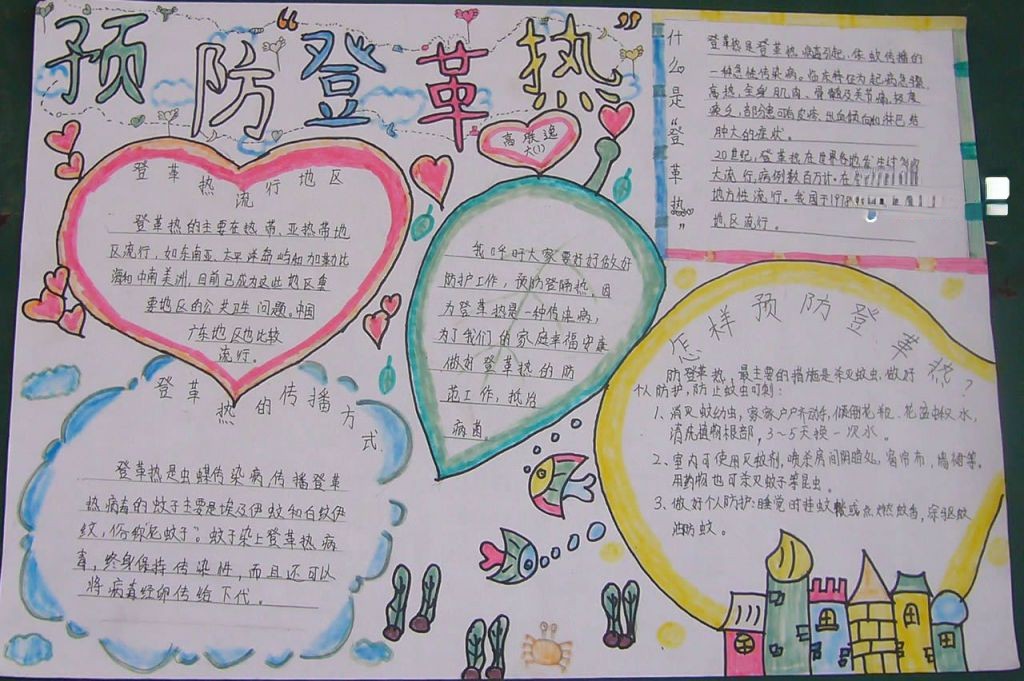 预防“登革热”
高联逸
大(1)
什么是“登革热”
登革热是登革热病毒引起、伊蚊传播的
一种急性传染病。临床特征为起病急骤,
高热,全身肌肉、骨髓及关节痛,极度
疲乏,部分患可有皮疹、出血倾向和淋巴结
肿大的症状。
20世纪,登革热在世界各地发生过
大流行,病例数百万计。在
地方性流行。我国于1978
地区流行。
登革热流行地区
登革热的主要在热带、亚热带地
区流行,如东南亚、太平洋岛屿和加勒比
海和中南美洲,目前已成为这此地区重
要地区的公共卫生问题。中国
广东地区也比较
流行。
我呼吁大家要好好做好
防护工作,预防登革热。因
为登革热是一种传染病,
为了我们的家庭幸福安康
做好登革热的防
范工作,抵治
病菌。
登革热的传播方式
登革热是虫媒传染病,传播登革
热病毒的蚊子主要是埃及伊蚊和白纹伊
蚊,俗称“花蚊子”。蚊子染上登革热病
毒,终身保持传染性,而且还可以
将病毒经卵传给下代。
怎样预防登革热?
防登革热,最主要的措施是杀灭蚊虫,做好
个人防护,防止蚊虫叮刺:
1、消灭蚊幼虫,家家户户齐动手,倾倒花瓶、花盆积水,
清洗植物根部,3~5天换一次水。
2、室内可使用灭蚊剂,喷杀房间阴暗处、窗帘布、墙裙等。
用药物也可杀灭蚊子等昆虫。
3、做好个人防护:睡觉时挂蚊帐或点燃蚊香,涂驱蚊
油防蚊。